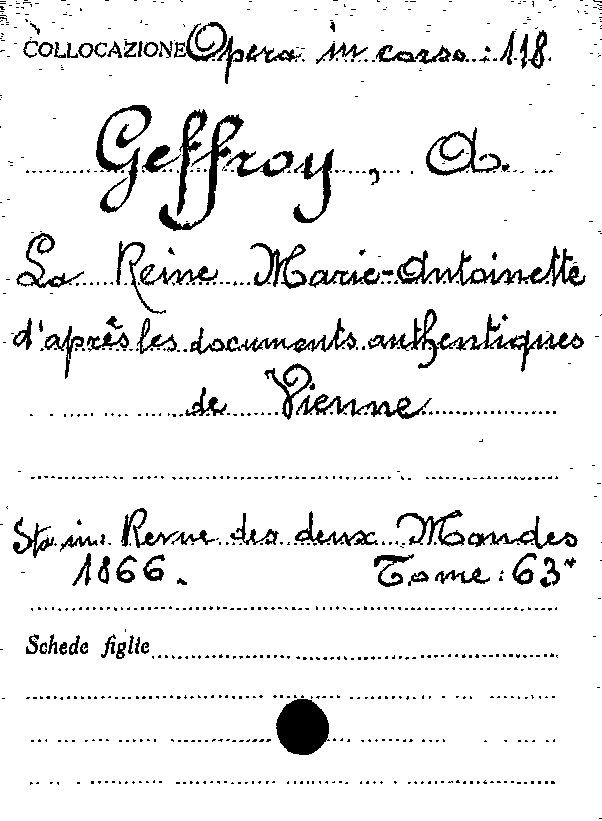 COLLOCAZIONE Opera in corso : 118
Geffroy, A.
La Reine Marie-Antoinette
d'après les documents authentiques
de Vienne
Sta in: Revue des deux Mondes
1866. Tome: 63*
Schede figlie